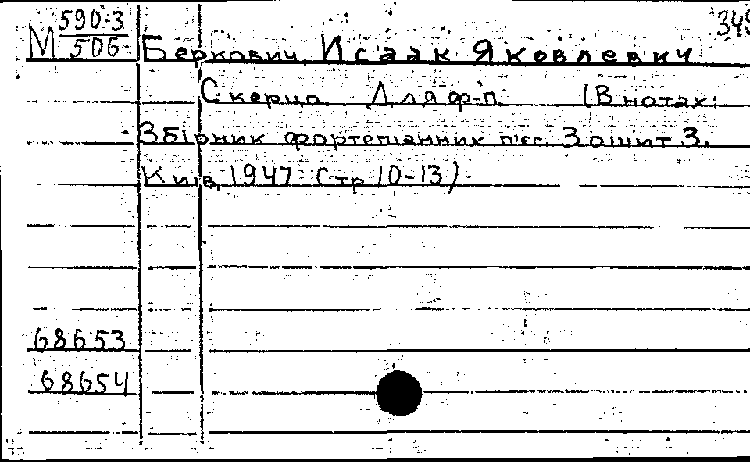 349
М 590-3
506
Беркович, Исаак Яковлевич
Скерцо. Для ф-п. (В нотах:
Збірник фортепіанних п'єс. Зошит 3.
Київ, 1947. Стр. 10-13)
68653
68654